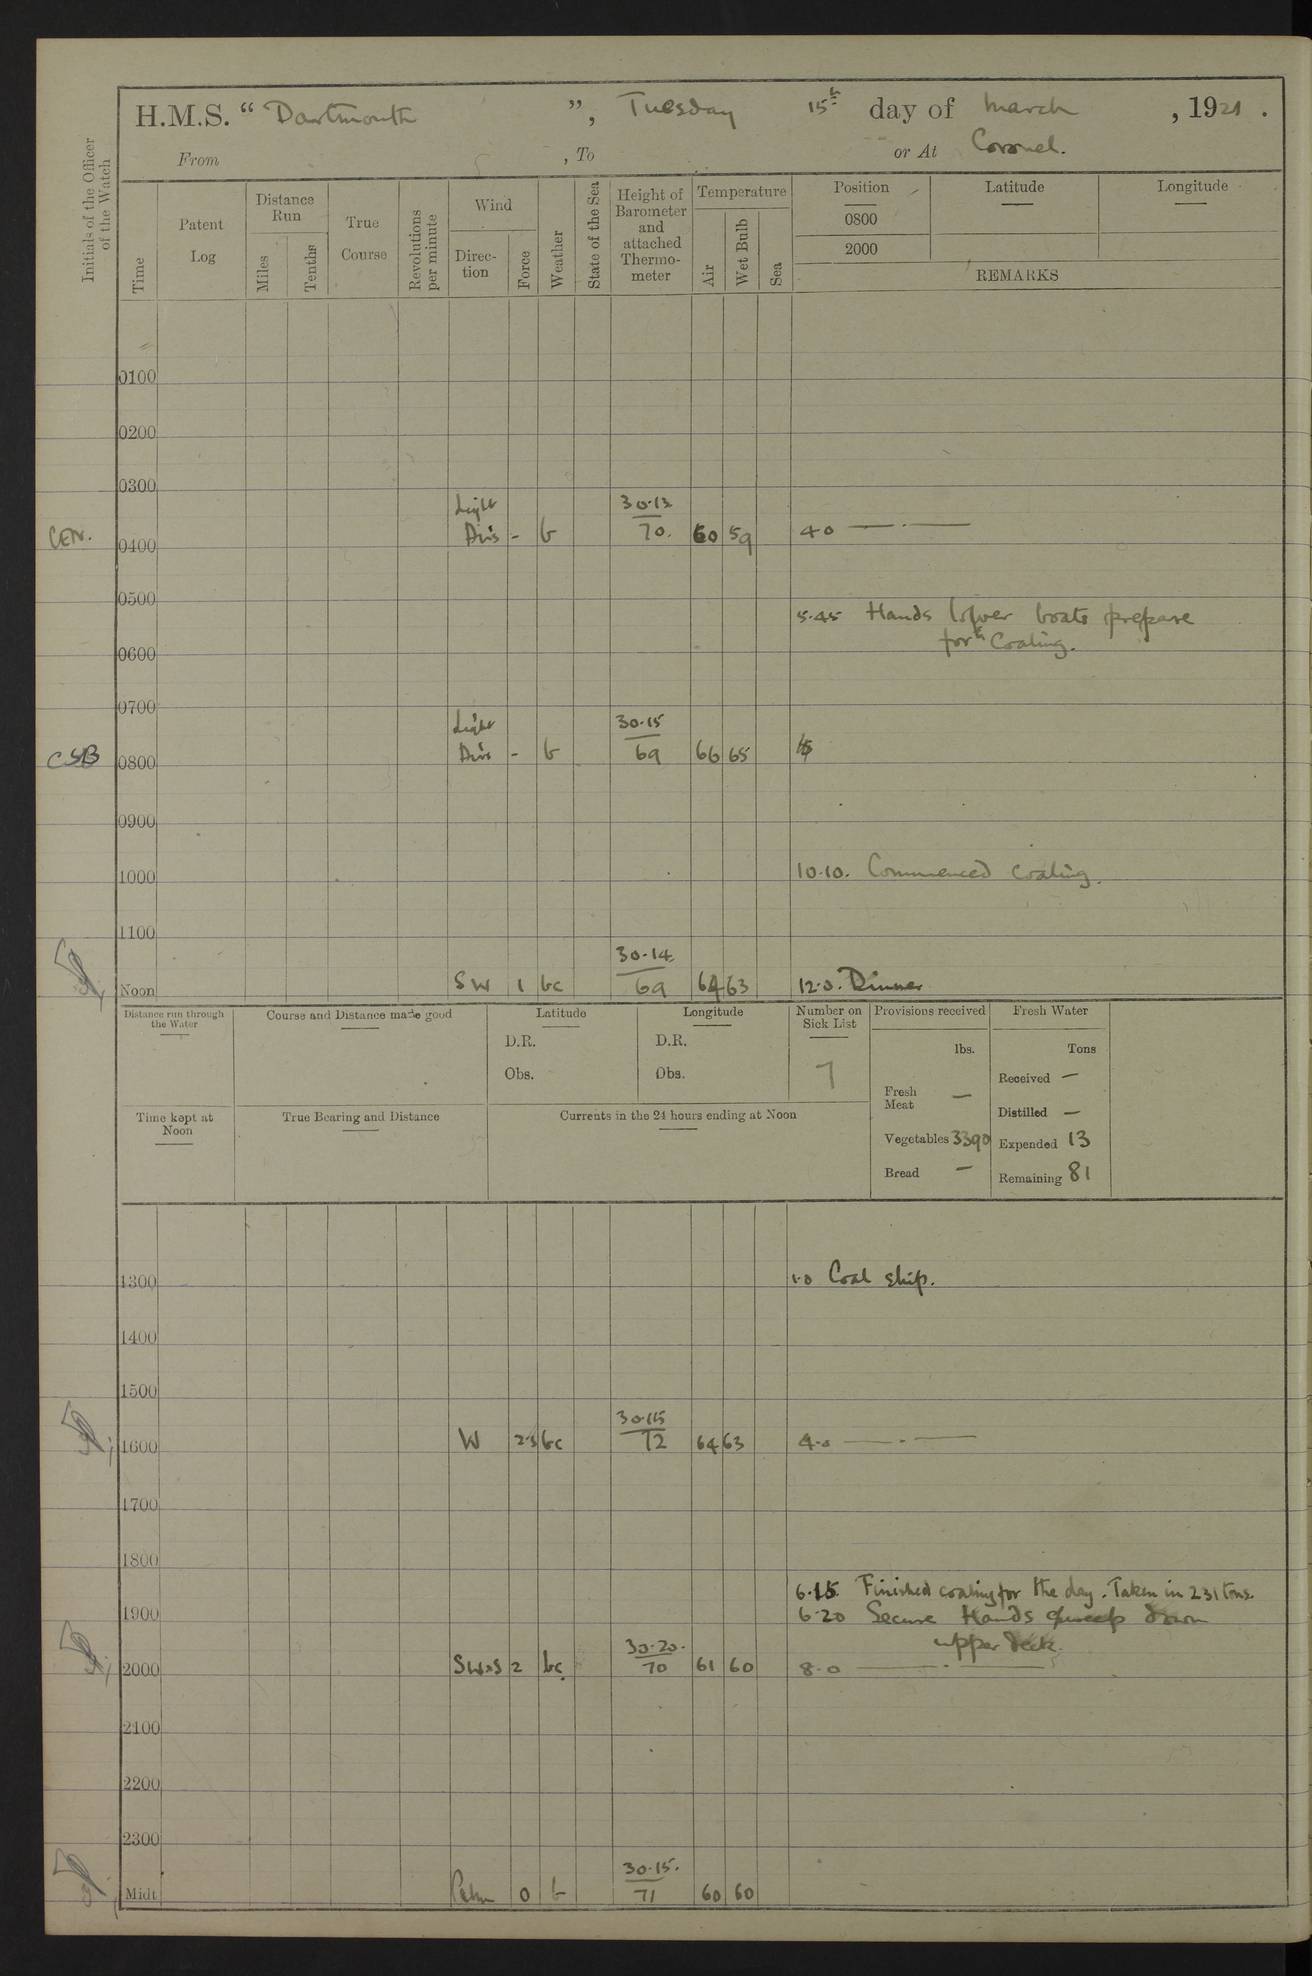 H.M.S. “ Dartmouth ”, Tuesday 15th day of March , 1921 .
From , To or At Coronel.
Initials of the Officer of the Watch
Time
Patent Log
Distance Run
Miles
Tenths
True Course
Revolutions per minute
Wind
Direction
Force
Weather
State of the Sea
Height of Barometer and attached Thermometer
Temperature
Air
Wet Bulb
Sea
Position Latitude Longitude
0800
2000
REMARKS
0100
0200
0300
Light 30.13
CEN. 0400 Airs - b 70. 60 59 4 0 — . —
0500
5.45 Hands lower boats prepare
for Coaling.
0600
0700
Light 30.15
CSB 0800 Airs - b 69 66 65
0900
1000 10.10. Commenced coaling.
1100
30.14
Noon SW 1 bc 69 64 63 12.0. Dinner
Distance run through the Water
Course and Distance made good
Latitude
D.R.
Obs.
Longitude
D.R.
Obs.
Number on Sick List
7
Provisions received
lbs.
Fresh Meat —
Vegetables 3390
Bread —
Fresh Water
Tons
Received —
Distilled —
Expended 13
Remaining 81
Time kept at Noon
True Bearing and Distance
Currents in the 24 hours ending at Noon
1300 1.0 Coal ship.
1400
1500
30.15
1600 W 2.3 bc 72 64 63 4.0 — . —
1700
1800
6.15 Finished coaling for the day. Taken in 231 tons.
1900 6.20 Secure Hands sweep down
upper deck.
30.20.
2000 SWxS 2 bc. 70 61 60 8.0 — . —
2100
2200
2300
30.15.
Midt Calm 0 b 71 60 60